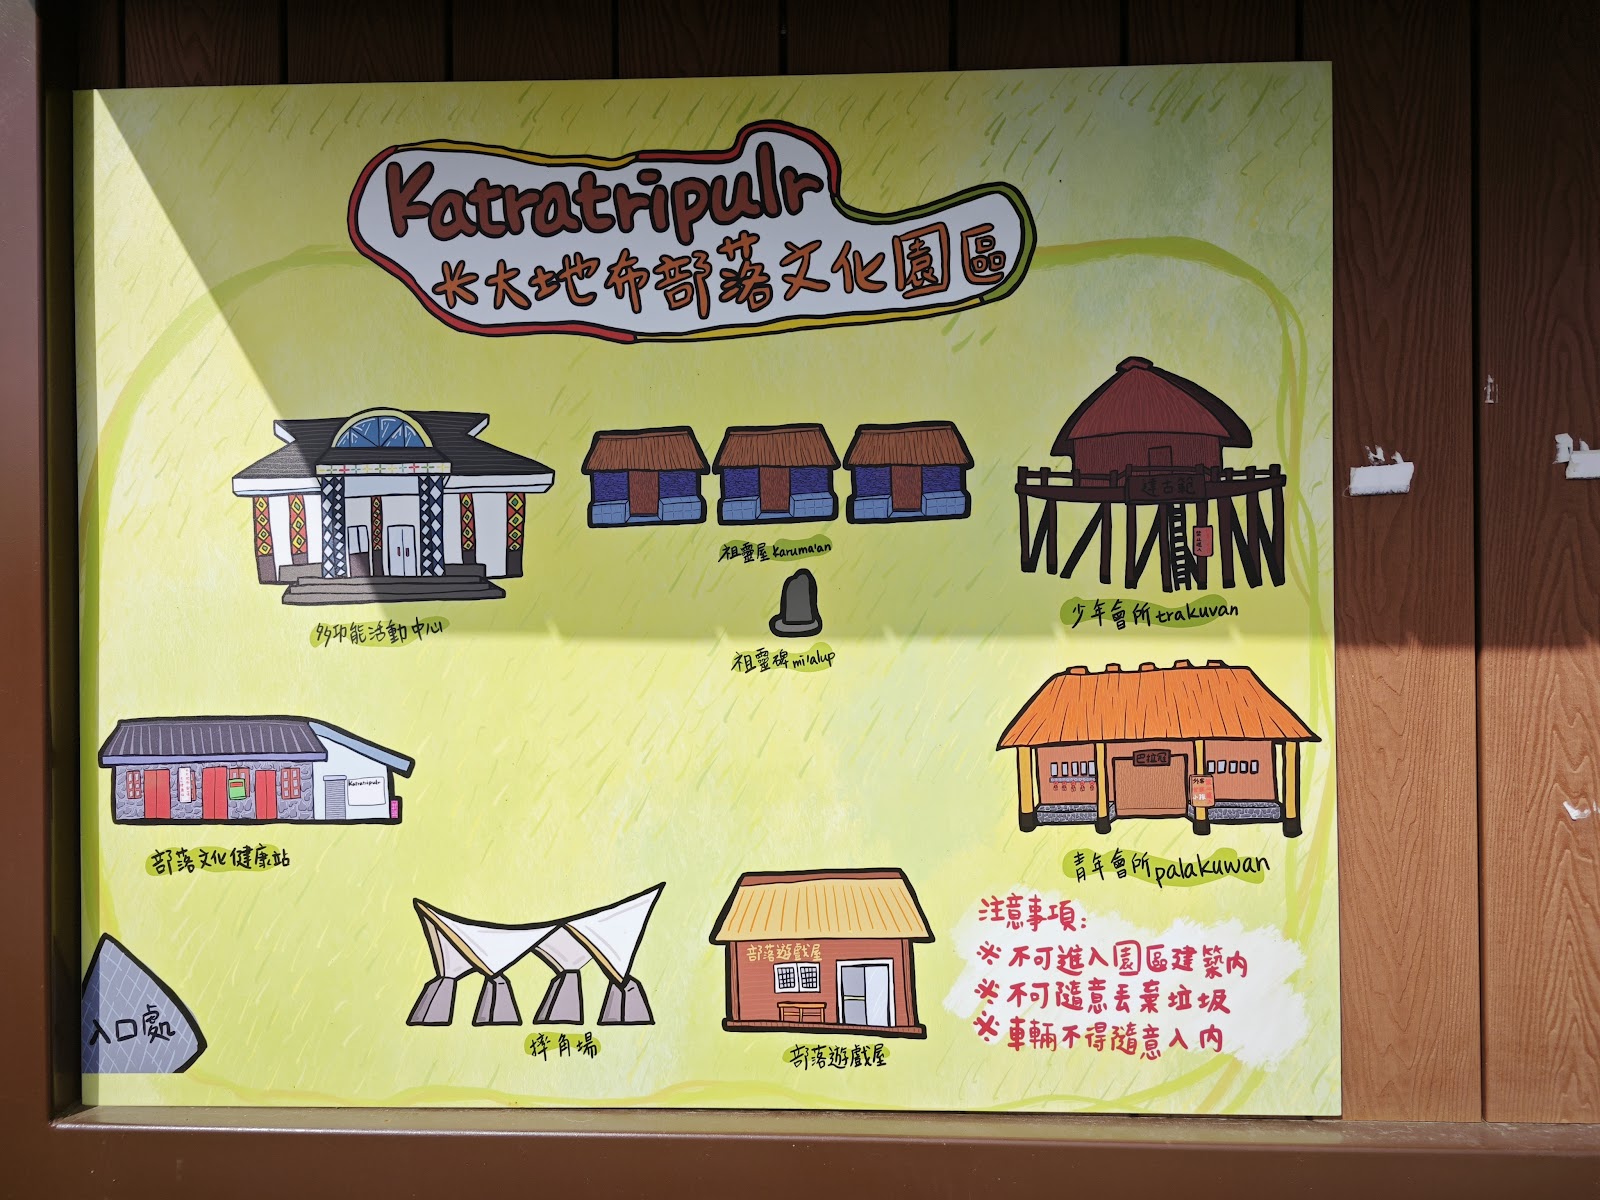 Katratripulr
卡大地布部落文化園區
多功能活動中心
祖靈屋 karuma'an
祖靈碑 mi'alup
達古範
少年會所 trakuvan
Katratripulr
部落文化健康站
巴拉冠
青年會所 palakuwan
入口處
摔角場
部落遊戲屋
部落遊戲屋
注意事項:
※不可進入園區建築內
※不可隨意丟棄垃圾
※車輛不得隨意入內